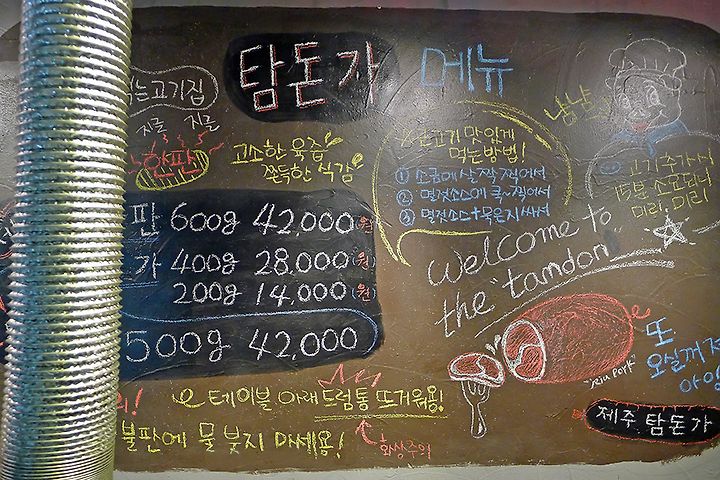 탐돈가 메뉴
는고기집
지글 지글
한판
고소한 육즙
쫀득한 식감
냠냠
맛있게
먹는방법!
① 소금에 살짝 찍어서
② 멜젓소스에 콕~찍어서
③ 멜젓소스+묵은지 싸서
고기 추가시
15분 소요되니
미리, 미리
판 600g 42,000(원)
가 400g 28,000(원)
200g 14,000(원)
500g 42,000
welcome to
the "tamdon"
또
오실꺼
제주 탐돈가
테이블 아래 드럼통 뜨거워용!
불판에 물 붓지 마세용!
화상주의